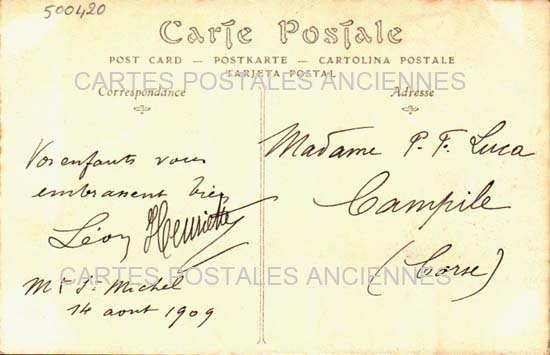 500420
Carte Postale
POST CARD — POSTKARTE — CARTOLINA POSTALE
TARJETA POSTAL
CARTES POSTALES ANCIENNES
Correspondance
Adresse
Vos enfants vous
embrassent bien
Léon Henriette
Mt St Michel
14 aout 1909
Madame P. F. Luca
Campile
(Corse)
CARTES POSTALES ANCIENNES